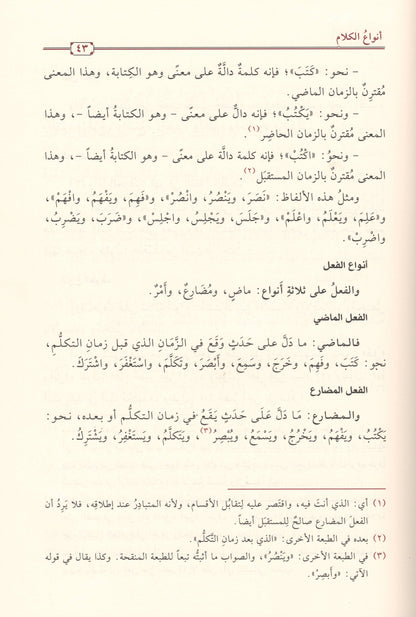 أنواعُ الكلام
٤٣
– نحو: «كَتَبَ»؛ فإنه كلمةٌ دالَّةٌ على معنًى وهو الكِتابة، وهذا المعنى
مُقترِنٌ بالزمان الماضي.
– ونحو: «يَكْتُبُ»؛ فإنه دالٌّ على معنًى – وهو الكتابةُ أيضاً –، وهذا
المعنى مُقترنٌ بالزمان الحاضِرِ(١).
– ونحوُ: «اكْتُبْ»؛ فإنه كلمة دالَّة على معنًى – وهو الكتابةُ أيضاً –، وهذا
المعنى مُقترنٌ بالزمان المستقبَل(٢).
ومثلُ هذه الألفاظ: «نَصَرَ، ويَنْصُرُ، وانْصُرْ»، و«فَهِمَ، ويَفْهَمُ، وافْهَمْ»،
و«عَلِمَ، ويَعْلَمُ، واعْلَمْ»، و«جَلَسَ، ويَجْلِسُ، واجْلِسْ»، و«ضَرَبَ، ويَضْرِبُ،
واضْرِبْ».
أنواع الفعل
والفعلُ على ثلاثةِ أَنواع: ماضٍ، ومُضَارِعٌ، وأَمْرٌ.
الفعل الماضي
فالماضي: ما دَلَّ على حَدَثٍ وَقَعَ في الزَّمَانِ الذي قبل زمانِ التكلُّمِ،
نحو: كَتَبَ، وفَهِمَ، وخَرَجَ، وسَمِعَ، وأَبْصَرَ، وتَكَلَّمَ، واسْتَغْفَرَ، واشْتَرَكَ.
الفعل المضارع
والمضارع: مَا دَلَّ عَلَى حَدَثٍ يَقَعُ في زمان التكلُّمِ أو بعده، نحو:
يَكْتُبُ، ويَفْهَمُ، ويَخْرُجُ، ويَسْمَعُ، ويُبْصِرُ(٣)، ويَتكلَّمُ، ويَسْتَغْفِرُ، ويَشْتَرِكُ.
(١) أي: الذي أنتَ فيه، واقتَصر عليه لِتقابُلِ الأقسام، ولأنه المتبادِرُ عند إطلاقِه، فلا يَرِدُ أن
الفعلَ المضارع صالحٌ لِلمستقبَل أيضاً.
(٢) بعده في الطبعة الأخرى: «الذي بعد زمانِ التَّكلُّم».
(٣) في الطبعة الأخرى: «ويَنْصُرُ»، والصواب ما أثبتُّه تبعاً للطبعة المنقحة. وكذا يقال في قوله
الآتي: «وأَبصِرْ».